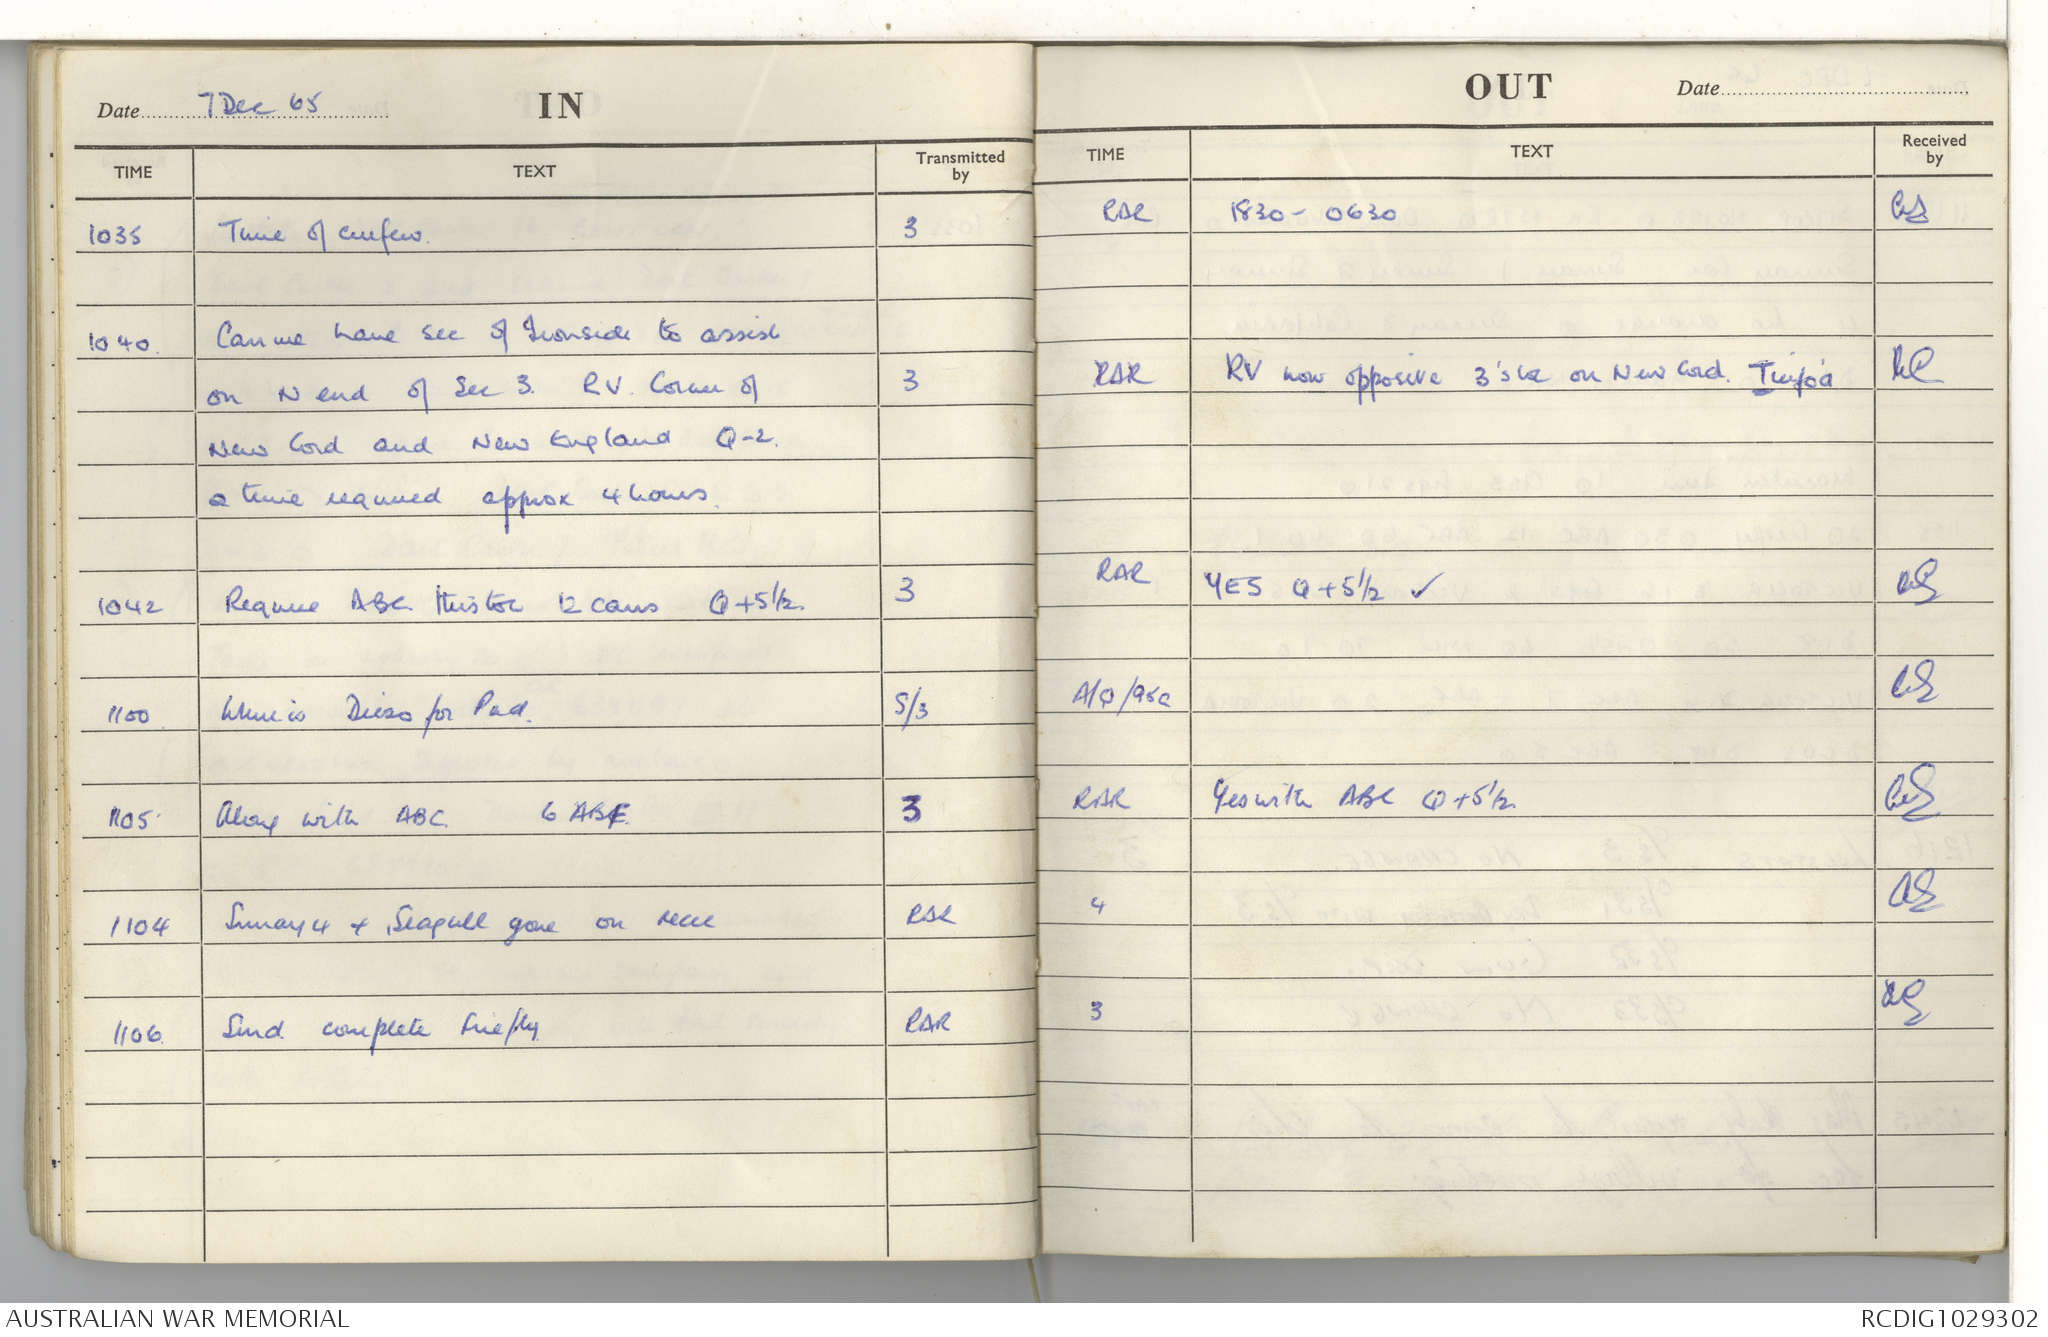 Date 7 Dec 65 IN
TIME TEXT Transmitted by
1035 Time of curfew. 3
1040. Can we have sec of Ironside to assist
on N end of Sec 3. RV. Corner of 3
New Cord and New England Q-2.
a time required approx 4 hours.
1042 Require ABC this loc 12 cans Q+5½. 3
1100 Where is Dieso for Pad. S/3
1105 Along with ABC. 6 ABE. 3
1104 Sunray 4 + Seagull gone on recce RAR
1106. Sind complete Firefly. RAR
OUT Date
TIME TEXT Received by
RAR 1830 - 0630
RAR RV now opposive 3's loc on New Cord.
RAR YES Q+5½ ✓
A/Q/95c
RAR Yes with ABC Q+5½.
4
3
AUSTRALIAN WAR MEMORIAL RCDIG1029302